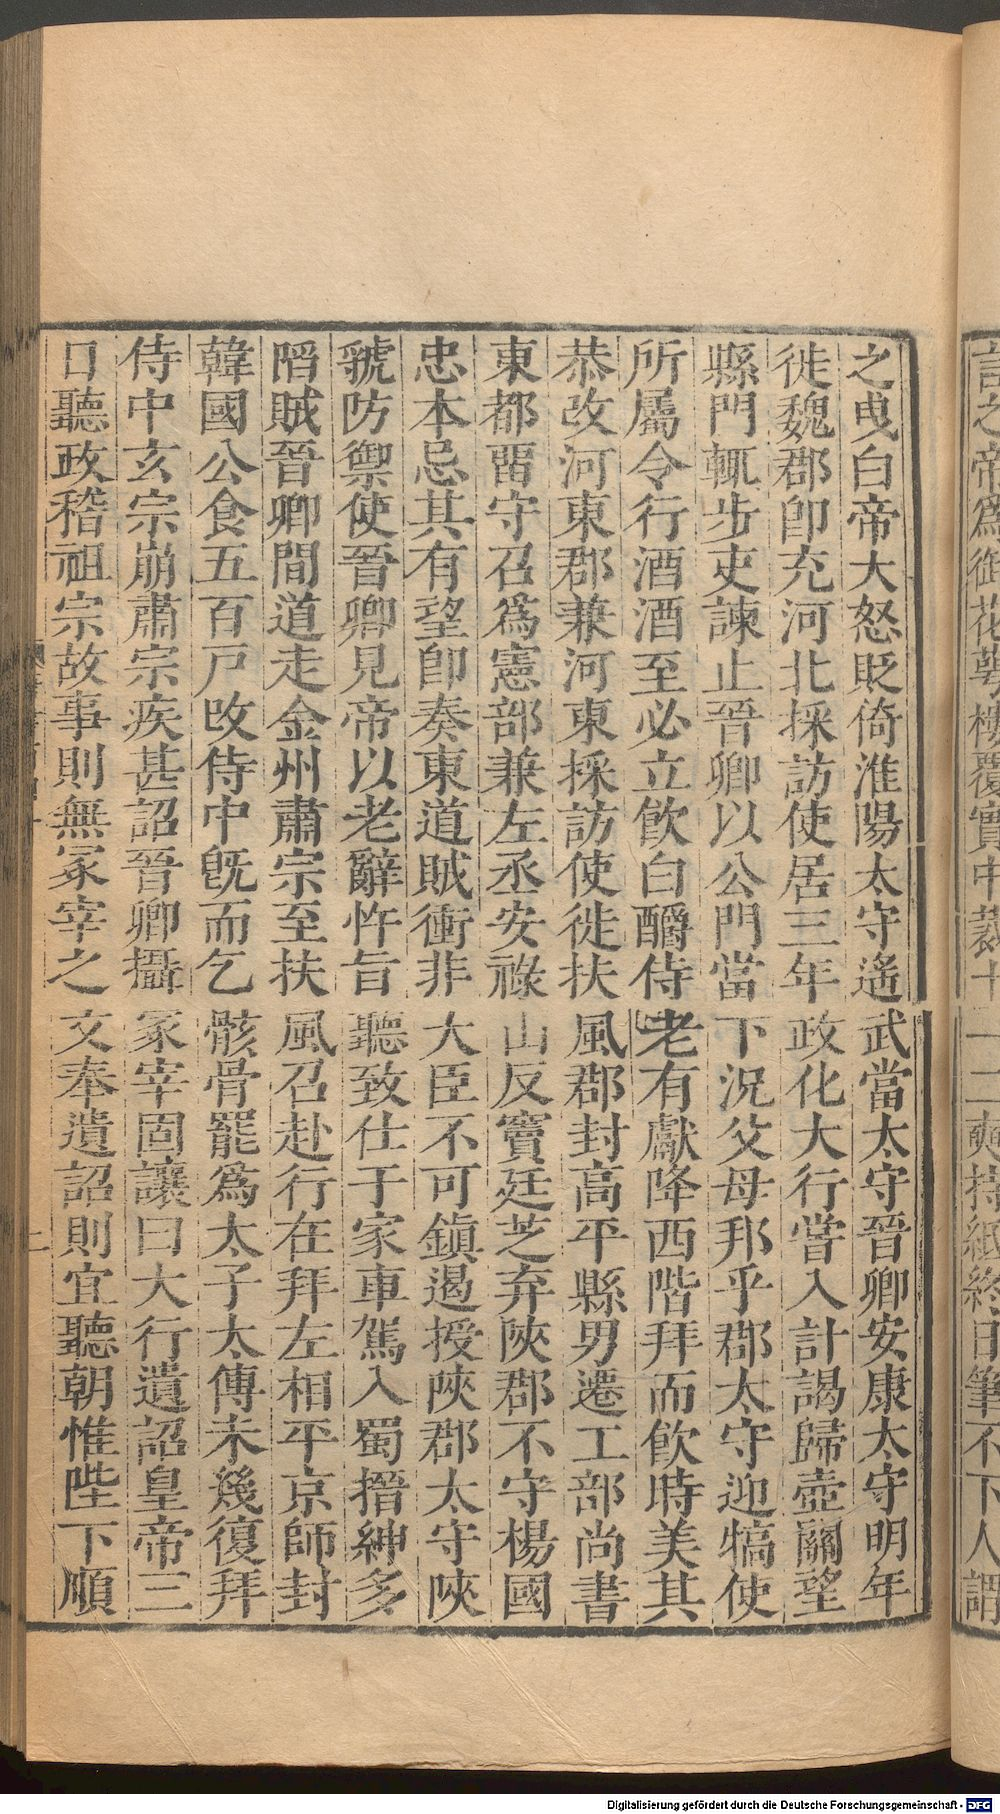 之曳白帝大怒貶倚淮陽太守遙武當太守晉卿安康太守明年
徙魏郡卽充河北採訪使居三年政化大行嘗入計謁歸壺關望
縣門輒步吏諫止晉卿以公門當下况父母邦乎郡太守迎犒使
所屬令行酒酒至必立飮白釂侍老有獻降西階拜而飮時美其
恭改河東郡兼河東採訪使徙扶風郡封高平縣男遷工部尚書
東都畱守召爲憲部兼左丞安祿山反竇廷芝弃陝郡不守楊國
忠本忌其有望卽奏東道賊衝非大臣不可鎮遏授陝郡太守陝
虢防禦使晉卿見帝以老辭忤旨聽致仕于家車駕入蜀搢紳多
䧟賊晉卿間道走金州肅宗至扶風召赴行在拜左相平京師封
韓國公食五百戸改侍中旣而乞骸骨罷爲太子太傅未幾復拜
侍中玄宗崩肅宗疾甚詔晉卿攝冢宰固讓曰大行遺詔皇帝三
日聽政稽祖宗故事則無冢宰之文奉遺詔則宜聽朝惟陛下順
之帝爲御花萼樓覆實中裁十一二奭持紙終日筆不下人謂
Digitalisierung gefördert durch die Deutsche Forschungsgemeinschaft - DFG